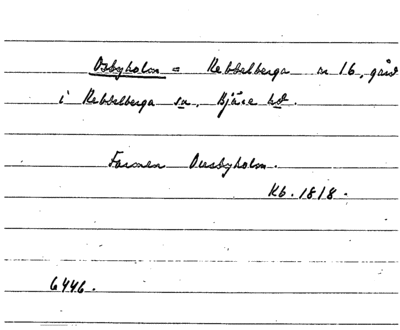 Osbyholm = Rebbelberga n 16, gård
i Rebbelberga sn, Bjäre hd.
Formen Ousbyholm.
Kb. 1818.
6446.